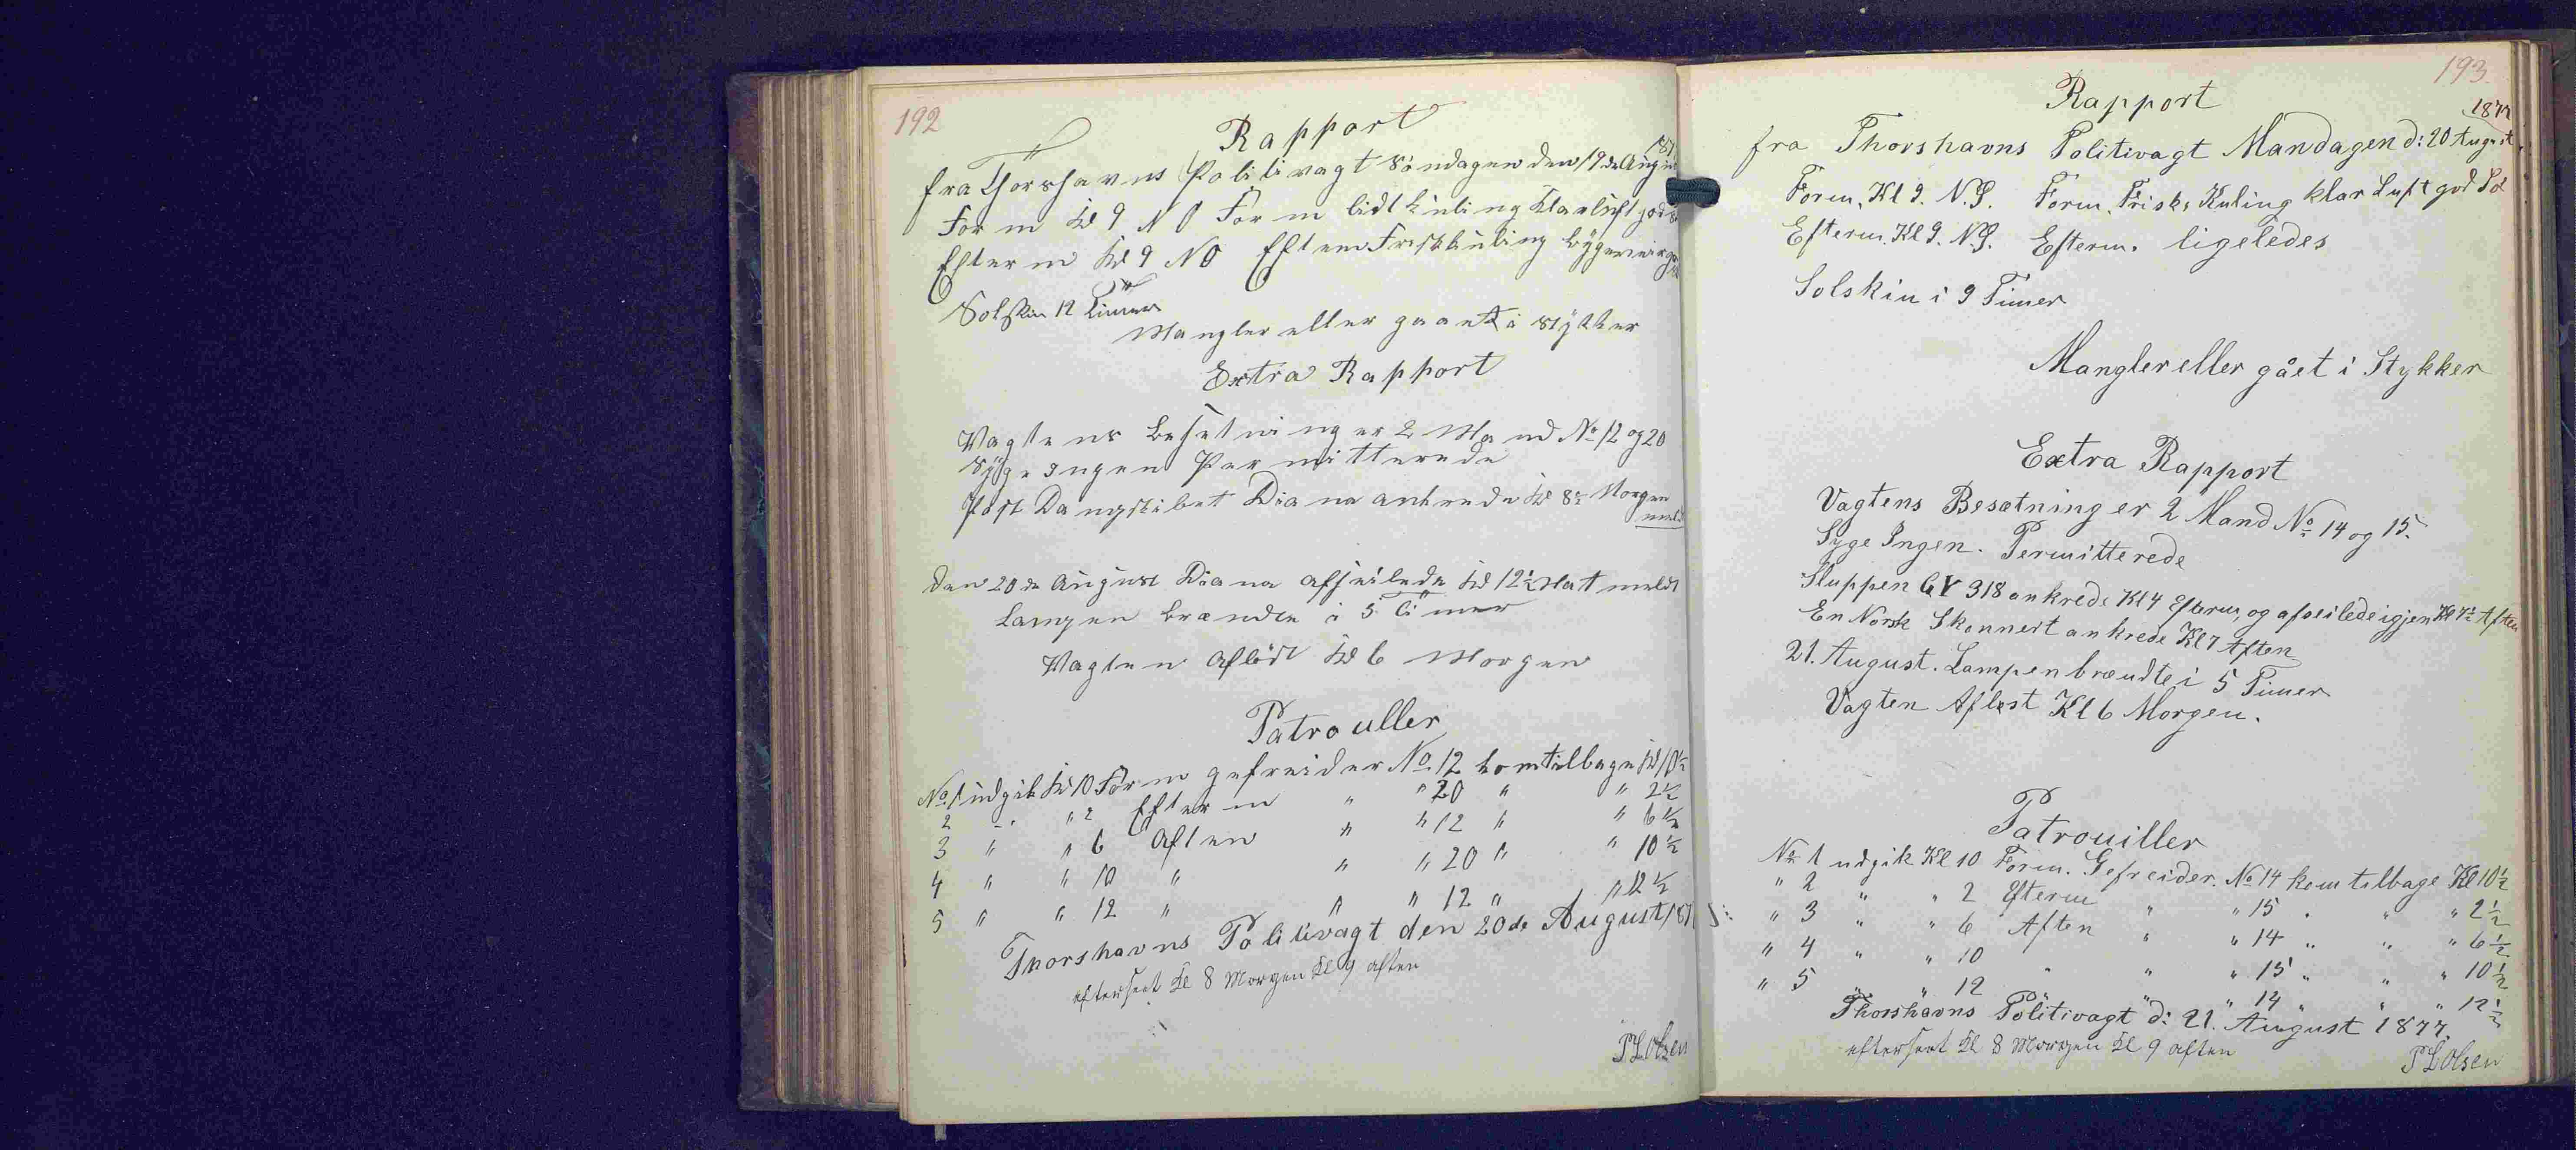 192
Rapport
fra Thorshavns Politivagt Söndagen den 19de Aug
Form Kl 9 N O Form lidt kuling Klarluft god
Efterm Kl 9 NO Efterm Friskkuling bygeveir
Solskin 12 Timer
Mangler eller gaaet i stykker
Extra Rapport
Vagtens besetning er 2 Mand No 12 og 20
syge Ingen Permitterede
Post Dampskibet Diana ankrede Kl 8½ Morgen
meldt
den 20de August Diana afseilede Kl 12½ Nat meldt
Lampen brændte i 5 Timer
Vagten aflöst Kl 6 Morgen
Patrouller
No 1 udgik Kl 10 Form gefreider No 12 kom tilbage Kl 10½
2 " " 2 Efterm " " 20 " " 2½
3 " " 6 Aften " " 12 " " 6½
4 " " 10 " " " 20 " " 10½
5 " " 12 " " " 12 " " 12½
Thorshavns Politivagt den 20de August 187
efterseet Kl 8 Morgen Kl 9 aften
P L Olsen
193
Rapport
1877
fra Thorshavns Politivagt Mandagen d: 20 August
Form. Kl 9. N.Ø. Form. Frisk Kuling klar Luft god
Efterm. Kl 9. N.Ø. Efterm. ligeledes
Solskin i 9 Timer
Mangler eller gået i Stykker
Extra Rapport
Vagtens Besætning er 2 Mand No 14 og 15.
Syge Ingen. Permitterede
Sluppen GY 318 ankrede Kl 4 Efterm, og afseilede igjen Kl 7½ Aften
En Norsk Skonnert ankrede Kl 7 Aften
21. August. Lampen brændte i 5 Timer
Vagten Afløst Kl 6 Morgen.
Patrouiller
No 1 udgik Kl 10 Form. Gefreider. No 14 kom tilbage Kl 10½
" 2 " " 2 Efterm " " 15 " " " 2½
" 3 " " 6 Aften " " 14 " " " 6½
" 4 " " 10 " " " 15 " " " 10½
" 5 " " 12 " " " 14 " " " 12½
Thorshavns Politivagt d: 21. August 1877.
efterseet Kl 8 Morgen Kl 9 aften
P L Olsen